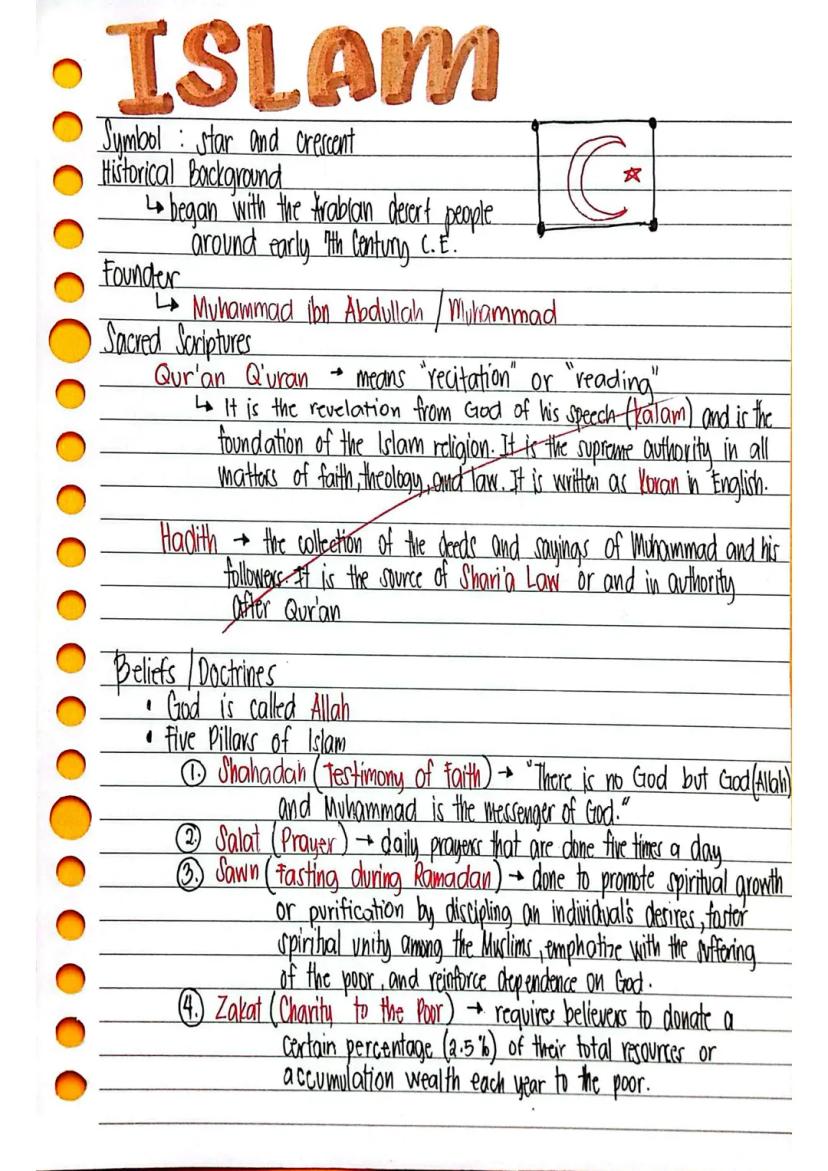 ISLAM
Symbol : star and crescent
Historical Background
↳ began with the Arabian desert people
around early 7th Century C.E.
Founder
↳ Muhammad ibn Abdullah / Muhammad
Sacred Scriptures
Qur'an Q'uran → means "recitation" or "reading"
↳ It is the revelation from God of his speech (kalam) and is the
foundation of the Islam religion. It is the supreme authority in all
matters of faith, theology, and law. It is written as Koran in English.
Hadith → the collection of the deeds and sayings of Muhammad and his
followers. It is the source of Shari'a Law or and in authority
after Qur'an
Beliefs / Doctrines
• God is called Allah
• Five Pillars of Islam
1. Shahadah (Testimony of Faith) → "There is no God but God (Allah)
and Muhammad is the messenger of God."
2. Salat (Prayer) → daily prayers that are done five times a day
3. Sawn (Fasting during Ramadan) → done to promote spiritual growth
or purification by discipling an individual's desires, foster
spiritual unity among the Muslims, emphatize with the suffering
of the poor, and reinforce dependence on God.
4. Zakat (Charity to the Poor) → requires believers to donate a
certain percentage (2.5%) of their total resources or
accumulation wealth each year to the poor.